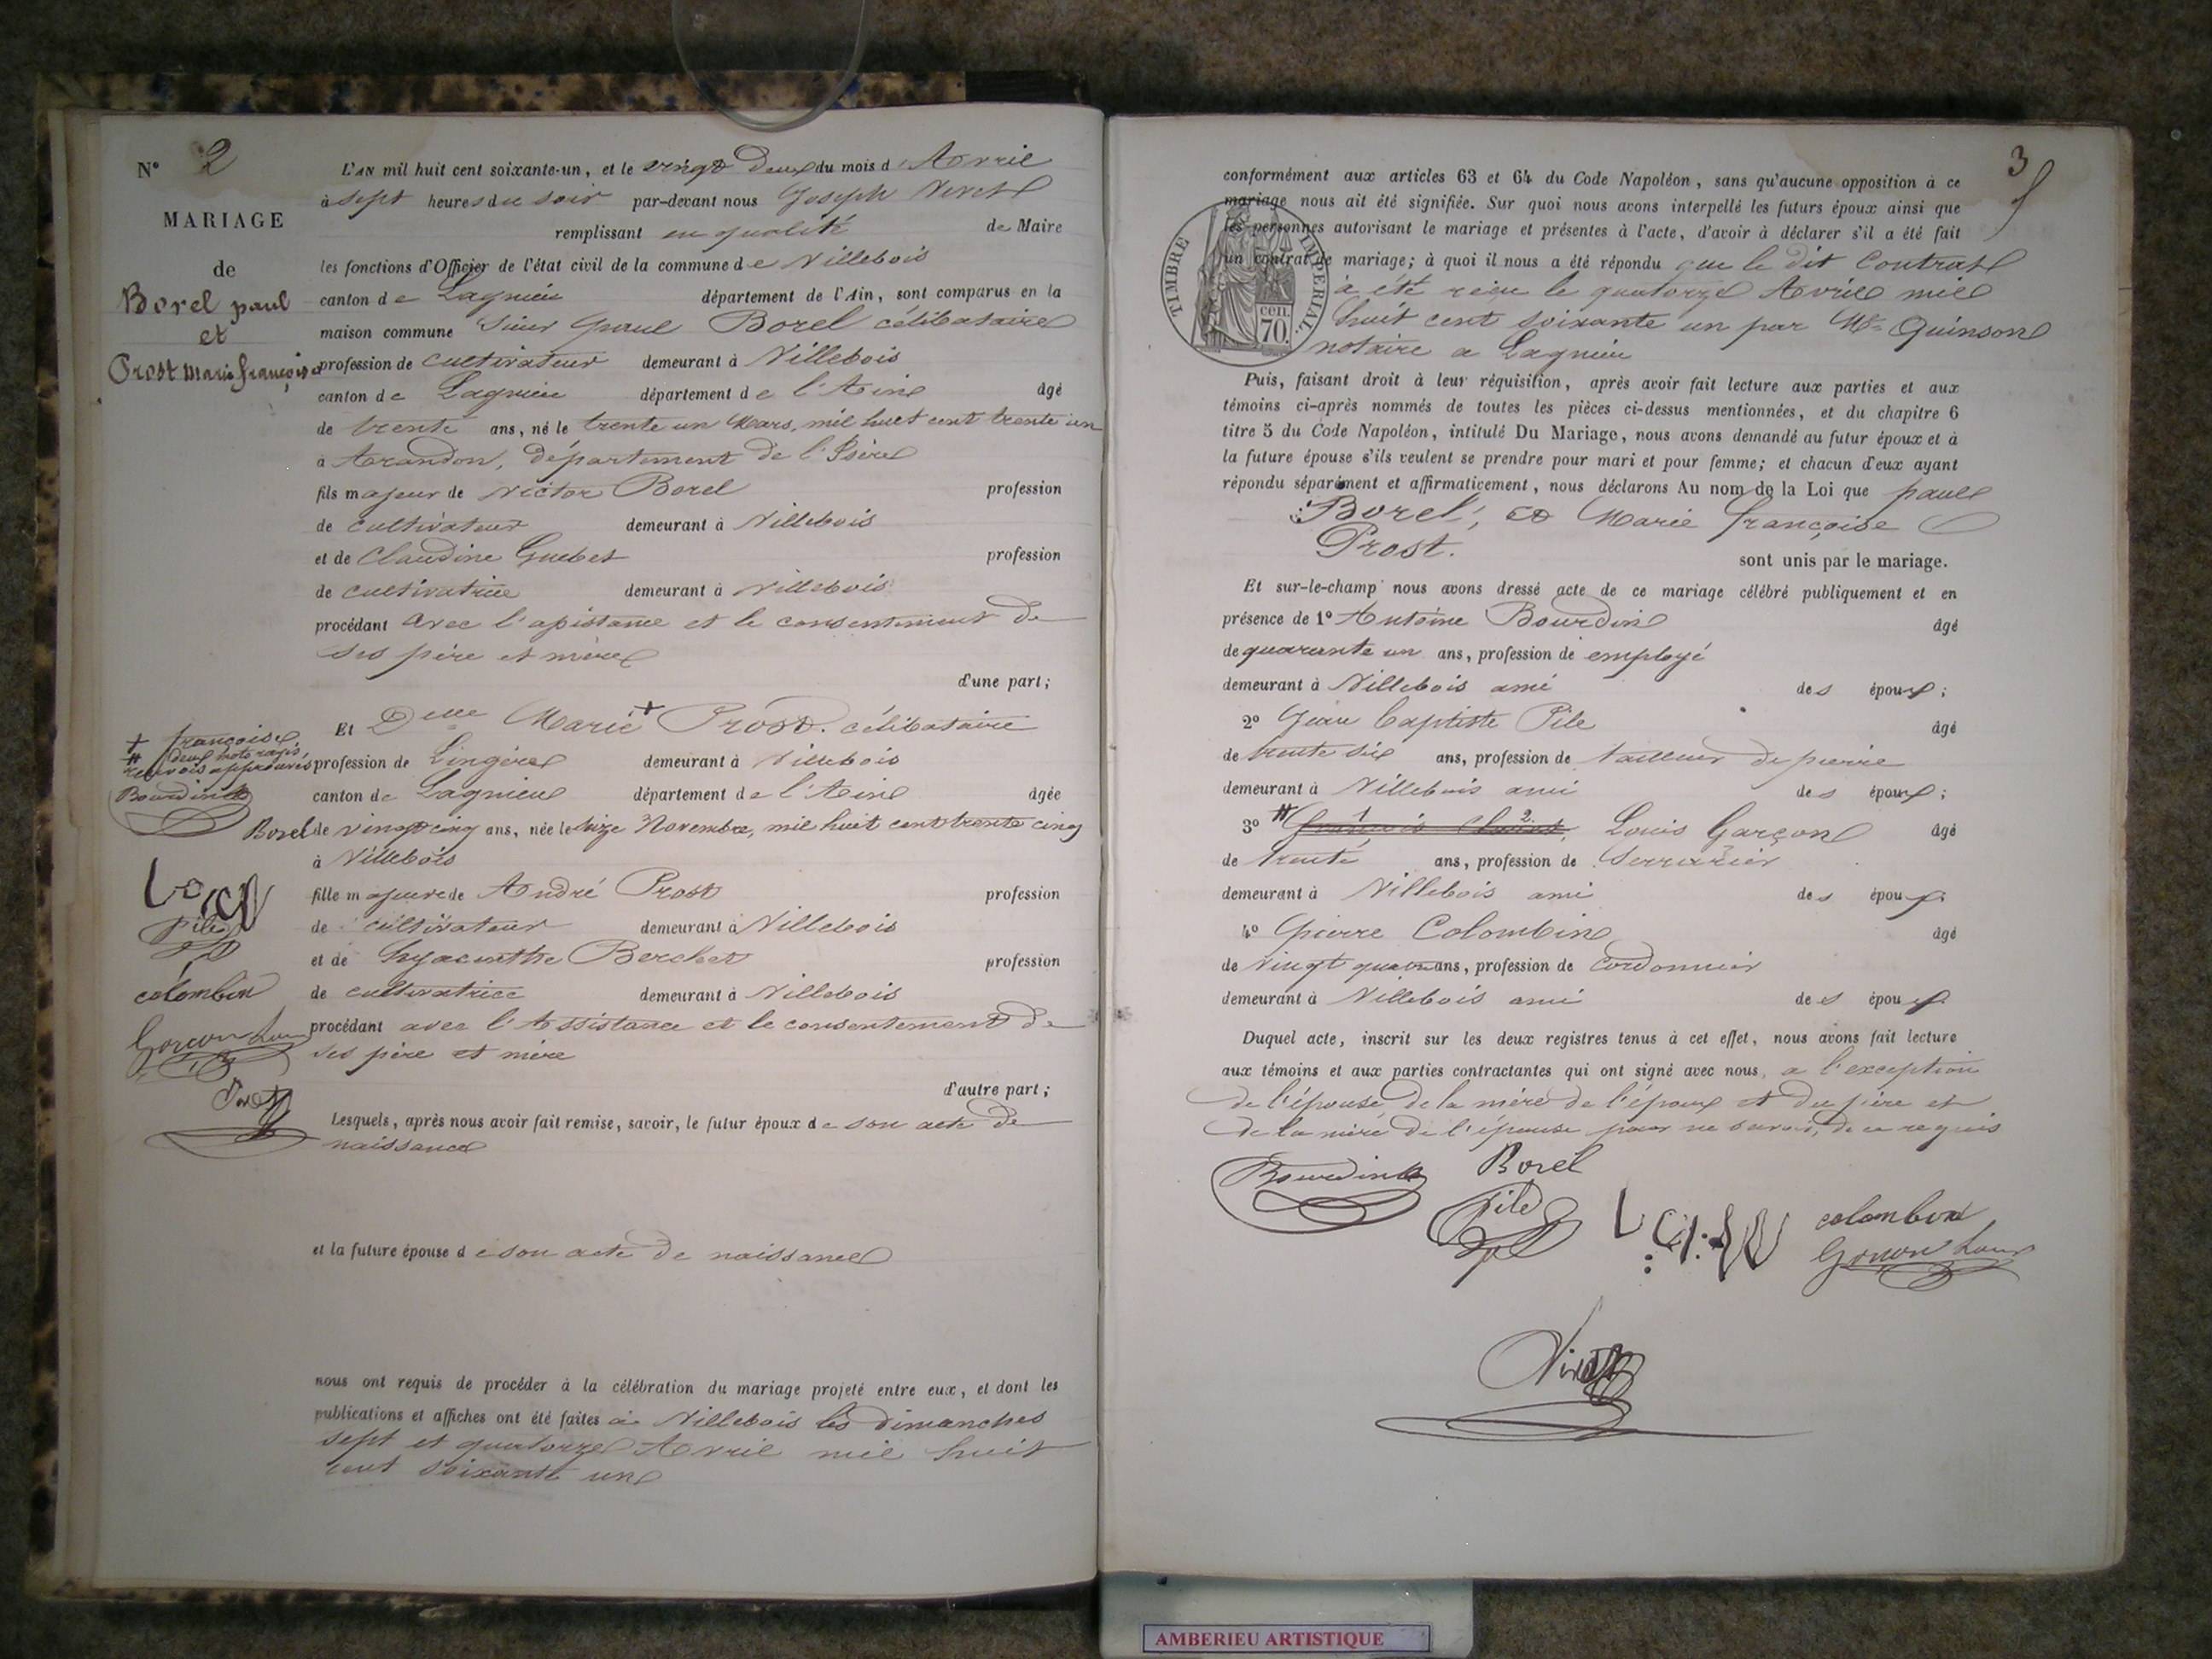 N° 2
MARIAGE
de
Borel paul
et
Prost marie françoise
L'AN mil huit cent soixante-un, et le vingt Deux du mois d'Avril
à sept heures du soir par-devant nous Joseph
remplissant en qualité de Maire
les fonctions d'Officier de l'état civil de la commune de Villebois
canton de Lagnieu département de l'Ain, sont comparus en la
maison commune Sieur paul Borel célibataire
profession de cultivateur demeurant à Villebois
canton de Lagnieu département de l'Ain âgé
de trente ans, né le trente un Mars, mil huit cent trente un
à Arandon, département de l'Isère
fils majeur de Victor Borel profession
de cultivateur demeurant à Villebois
et de Claudine Guebet profession
de cultivatrice demeurant à Villebois
procédant avec l'assistance et le consentement de
ses père et mère
d'une part;
Et Delle Marie + Prost. célibataire
profession de Lingère demeurant à Villebois
canton de Lagnieu département de l'Ain âgée
de vingt cinq ans, née le seize Novembre, mil huit cent trente cinq
à Villebois
fille majeure de André Prost profession
de cultivateur demeurant à Villebois
et de hyacinthe Berchet profession
de cultivatrice demeurant à Villebois
procédant avec l'Assistance et le consentement de
ses père et mère
d'autre part;
Lesquels, après nous avoir fait remise, savoir, le futur époux de son acte de
naissance
et la future épouse de son acte de naissance
nous ont requis de procéder à la célébration du mariage projeté entre eux, et dont les
publications et affiches ont été faites à Villebois les dimanches
sept et quatorze Avril mil huit
cent soixante un
+ françoise
# deux mots rayés
renvois approuvés
Bourdin
Borel
Pile
colombin
Garçon Louis
3
conformément aux articles 63 et 64 du Code Napoléon, sans qu'aucune opposition à ce
mariage nous ait été signifiée. Sur quoi nous avons interpellé les futurs époux ainsi que
les personnes autorisant le mariage et présentes à l'acte, d'avoir à déclarer s'il a été fait
un contrat de mariage; à quoi il nous a été répondu que le dit Contrat
à été reçu le quatorze Avril mil
huit cent soixante un par Me Quinson
notaire a Lagnieu
TIMBRE IMPERIAL.
70. CEN.
Puis, faisant droit à leur réquisition, après avoir fait lecture aux parties et aux
témoins ci-après nommés de toutes les pièces ci-dessus mentionnées, et du chapitre 6
titre 5 du Code Napoléon, intitulé Du Mariage, nous avons demandé au futur époux et à
la future épouse s'ils veulent se prendre pour mari et pour femme; et chacun d'eux ayant
répondu séparément et affirmativement, nous déclarons Au nom de la Loi que paul
Borel, et Marie françoise
Prost.
sont unis par le mariage.
Et sur-le-champ nous avons dressé acte de ce mariage célébré publiquement et en
présence de 1° Antoine Bourdin âgé
de quarante un ans, profession de employé
demeurant à Villebois ami des époux;
2° Jean baptiste Pile âgé
de trente six ans, profession de tailleur de pierre
demeurant à Villebois ami des époux;
3° # Louis Garçon âgé
de trente ans, profession de Serrurier
demeurant à Villebois ami des époux
4° pierre Colombin âgé
de vingt quatre ans, profession de Cordonnier
demeurant à Villebois ami des époux
Duquel acte, inscrit sur les deux registres tenus à cet effet, nous avons fait lecture
aux témoins et aux parties contractantes qui ont signé avec nous, a l'exception
de l'épouse de la mère de l'époux et du père et
de la mère de l'épouse pour ne savoir, de ce requis
Bourdin Borel
Pile colombin
Garçon Louis
AMBERIEU ARTISTIQUE